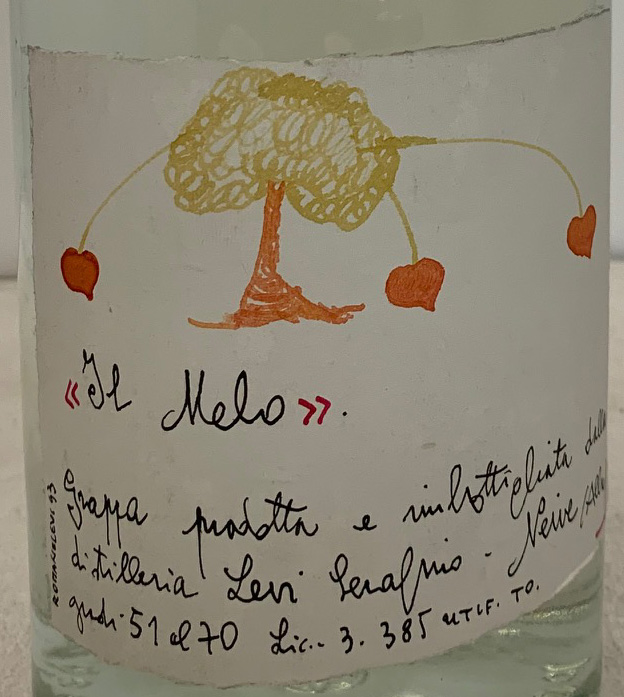 «Il Melo».
Grappa prodotta e imbottigliata dalla
distilleria Levi Serafino - Neive
gradi 51 al 70 Lic. 3. 385 UTIF. TO.
ROMANO LEVI 93